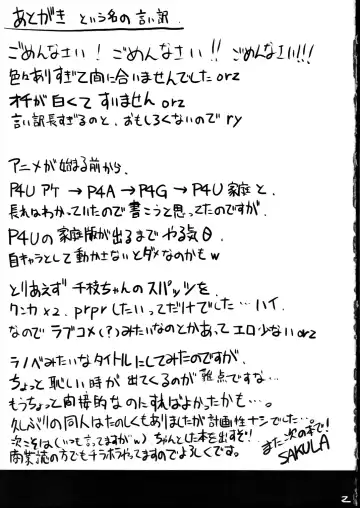 あとがき という名の言い訳.
ごめんなさい! ごめんなさい!! ごめんなさい!!!
色々ありすぎて間に合いませんでした orz
オチが白くて すいません orz
言い訳長すぎるのと、おもしろくないので ry
アニメが始まる前から、
P4U アケ → P4A → P4G → P4U 家庭 と、
流れはわかっていたので 書こうと思ってたのですが、
P4Uの 家庭版が出るまで やる気0.
自キャラとして動かさないとダメなのかもw
とりあえず 千枝ちゃんの スパッツを
クンカ×2、prprしたいってだけでした…ハイ.
なので ラブコメ(?)みたいなのとかあって エロ少ない orz
ラノベみたいなタイトルにしてみたのですが、
ちょっと 恥しい時が 出てくるのが 難点ですな…
もうちょっと間接的なのにすればよかったかも…。
久しぶりの同人はたのしくもありましたが計画性ナシでした…。
次こそは(いつも言ってますがw)ちゃんとした本を出すぞ!!
商業誌の方でもチラホラやってますのでよろしくです。
また次の本で!
SAKULA
2